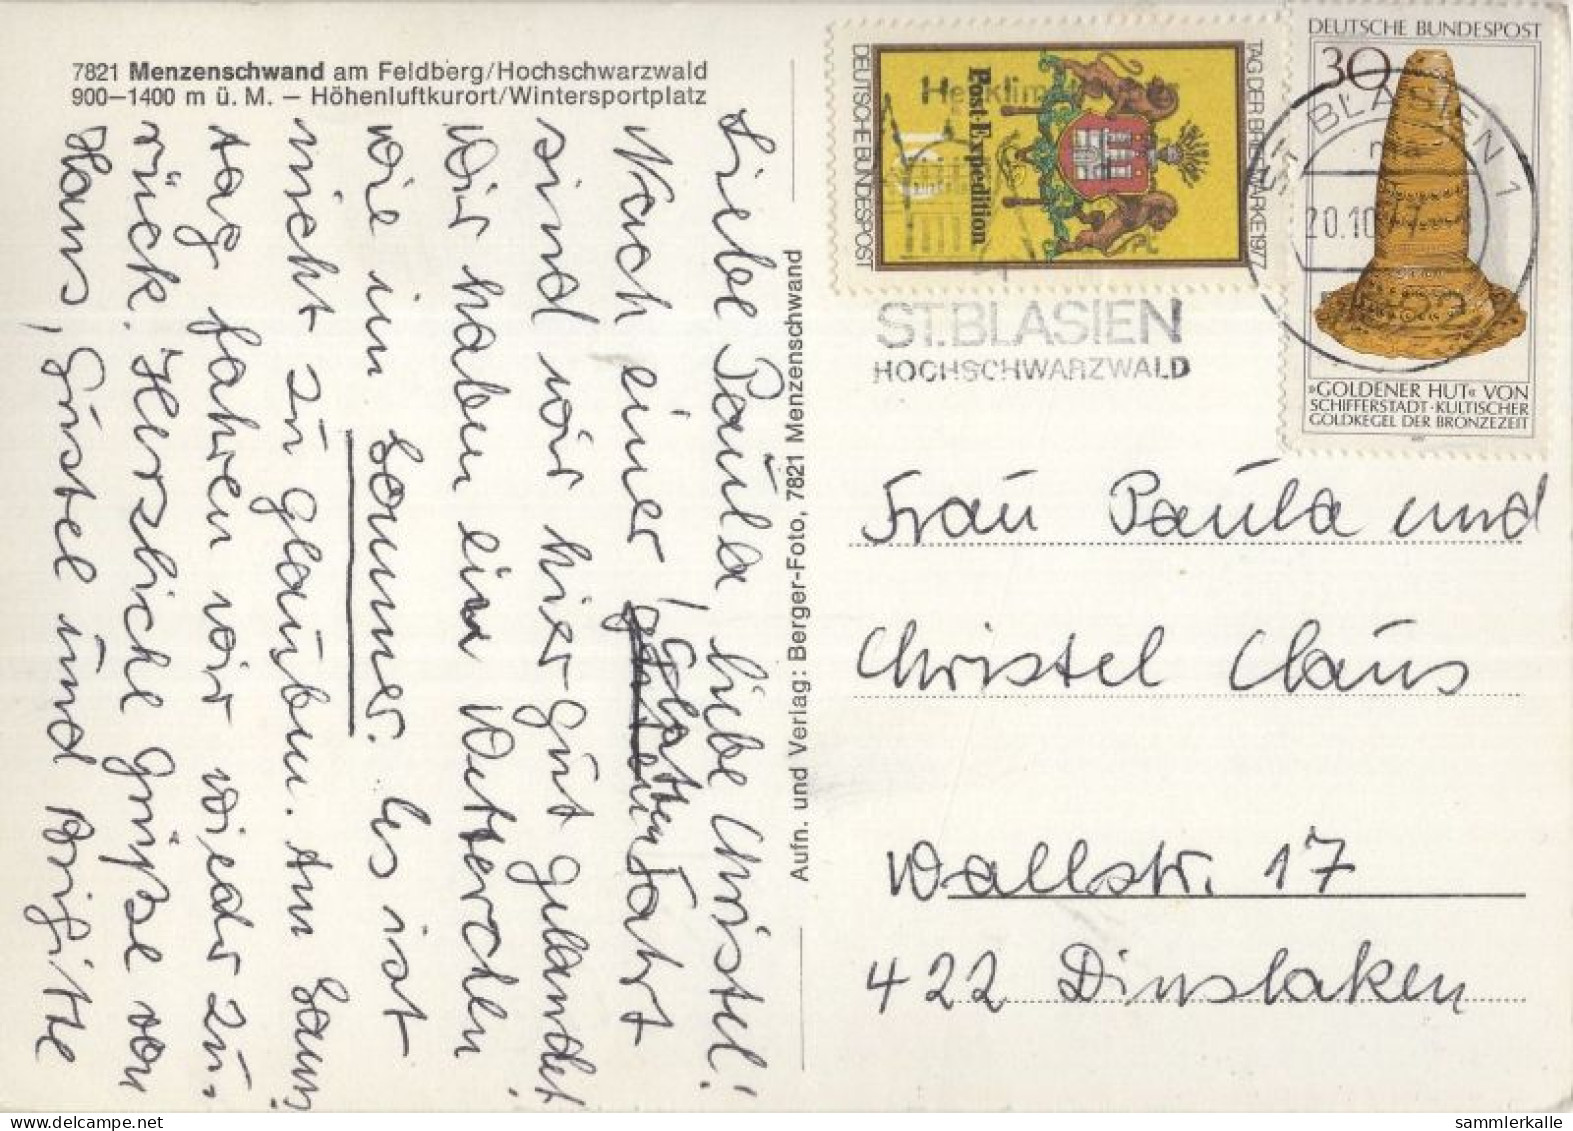 7821 Menzenschwand am Feldberg/Hochschwarzwald
900–1400 m ü. M. – Höhenluftkurort/Wintersportplatz
Liebe Paula, liebe Christel!
Nach einer glatten Fahrt
sind wir hier gut gelandet.
Wir haben ein Wetterchen
wie im Sommer. Es ist
nicht zu glauben. Am Sams-
tag fahren wir wieder zu-
rück. Herzliche Grüße von
Hans, Gustel und Brigitte
Aufn. und Verlag: Berger-Foto, 7821 Menzenschwand
TAG DER BRIEFMARKE 1977
Post-Expedition
DEUTSCHE BUNDESPOST
DEUTSCHE BUNDESPOST
30
»GOLDENER HUT« VON
SCHIFFERSTADT·KULTISCHER
GOLDKEGEL DER BRONZEZEIT
ST. BLASIEN 1
20.10
ST. BLASIEN
HOCHSCHWARZWALD
Frau Paula und
Christel Claus
Wallstr. 17
422 Dinslaken
sammlerkalle